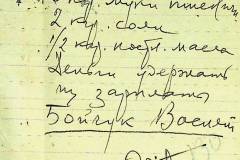 кгр. муки пшенич
2 кгр. соли
1/2 кгр. постн. масла
Деньги удержать
из зарплаты
Бойчук Восилей